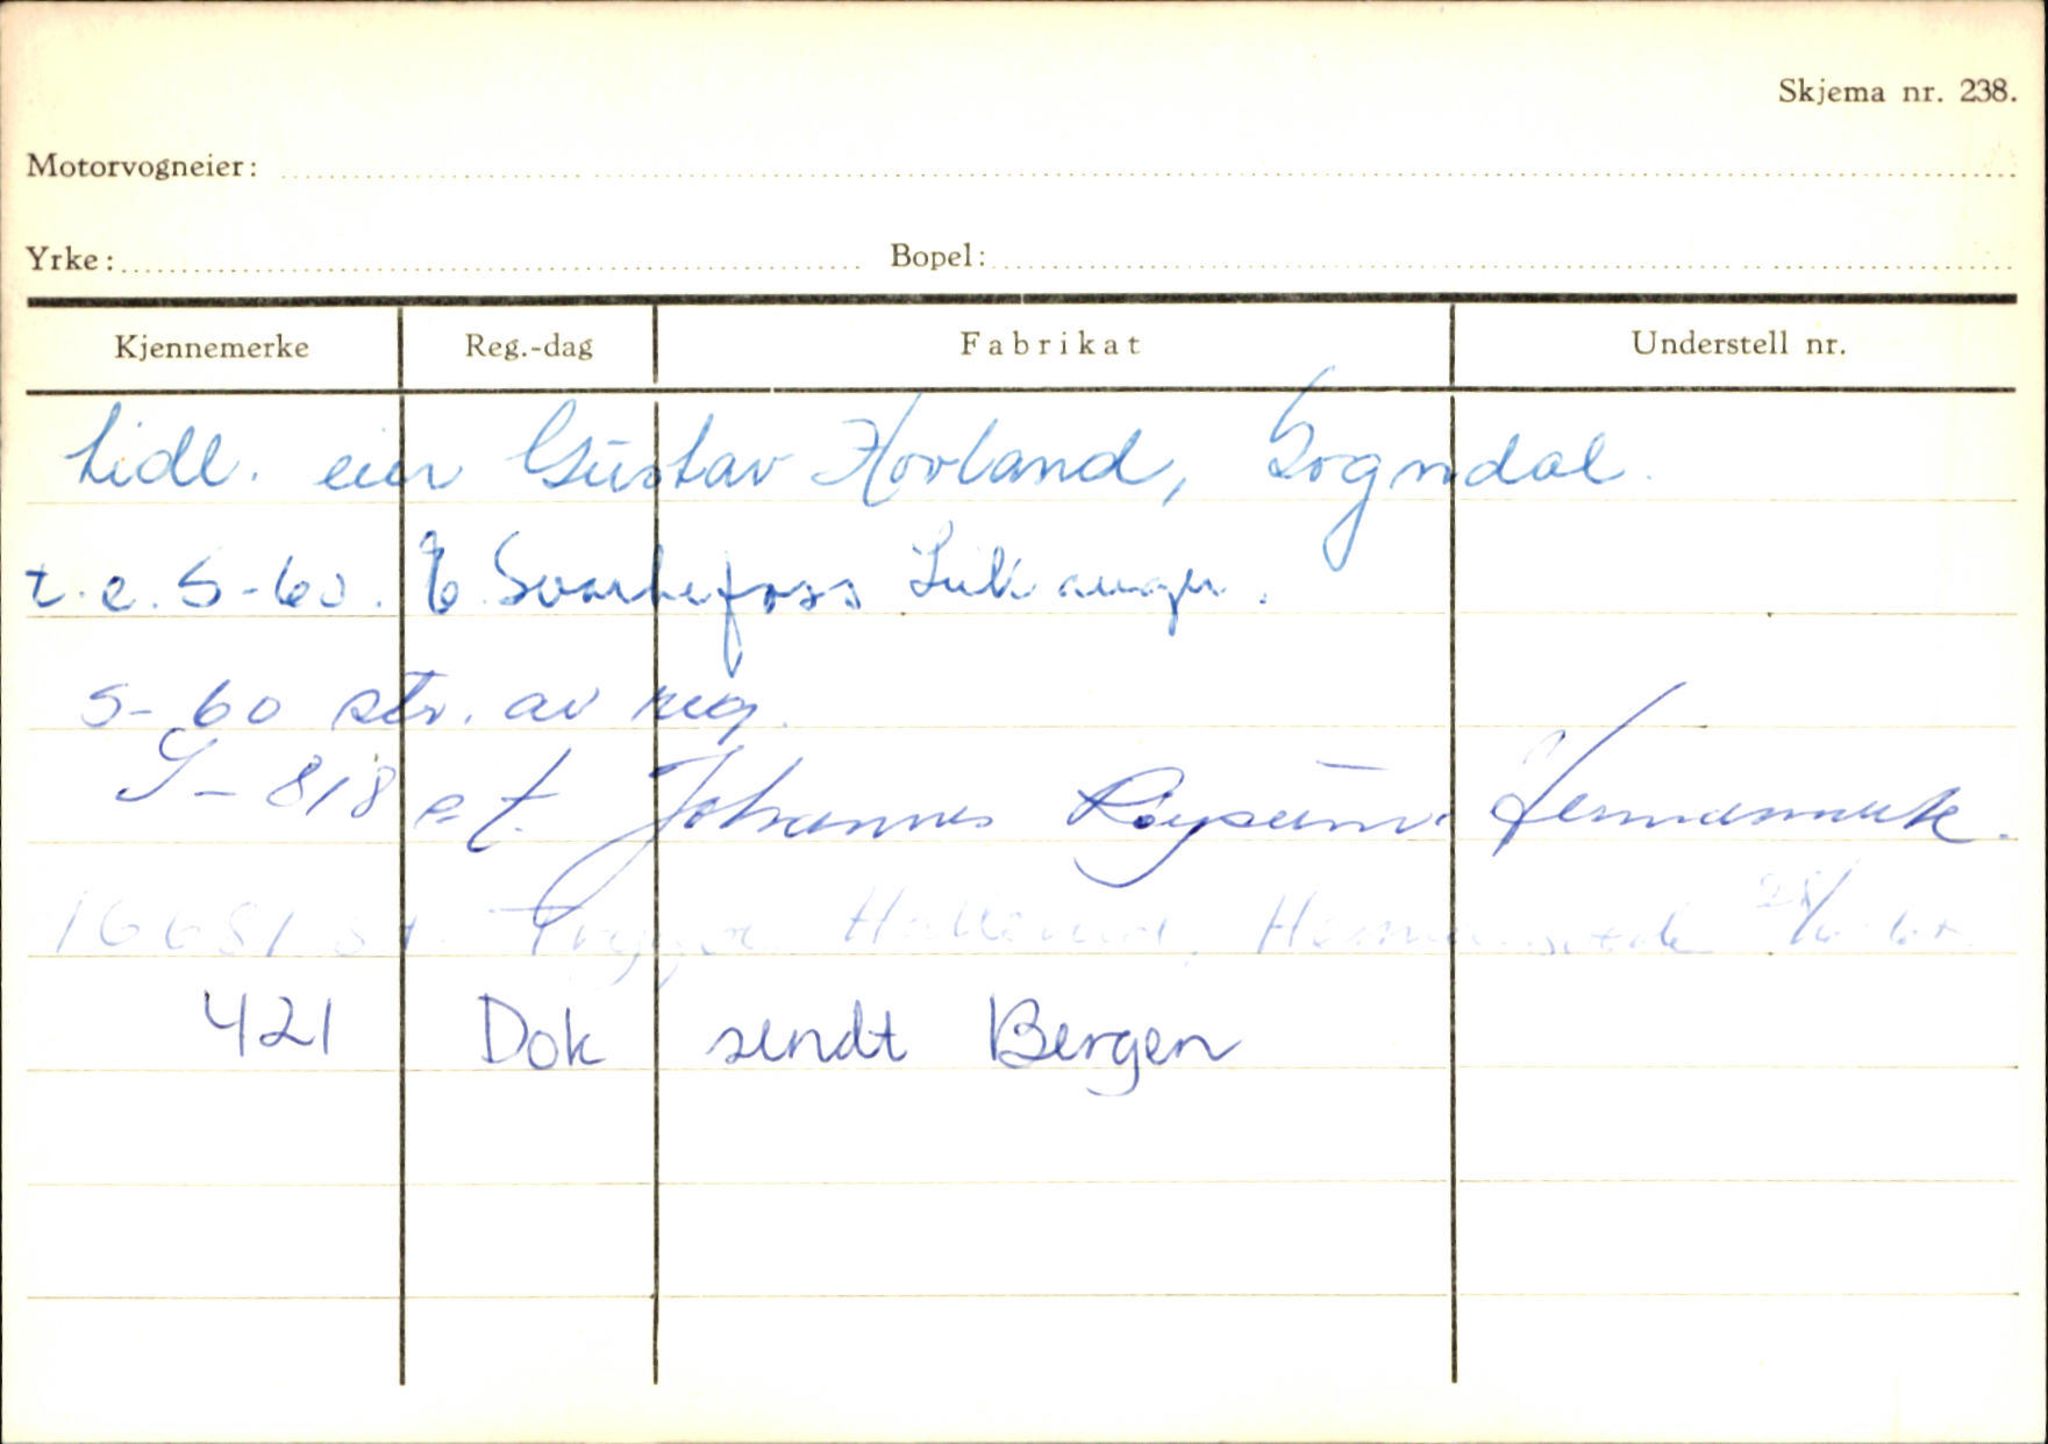 Skjema nr. 238.
Motorvogneier:
Yrke: Bopel:
Kjennemerke Reg.-dag Fabrikat Understell nr.
tidl. eier Gustav Hovland, Sogndal.
t.e. S-60. E. Svartefoss Leikanger.
S-60 str. av reg.
S-818 et. Johannes Røysum. Hermansverk.
16681 et. Trygve Hermansverk
421 Dok sendt Bergen